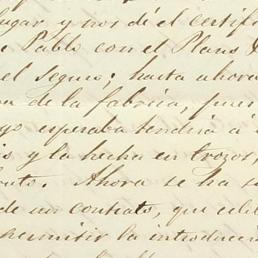 lugar y nos dé el certifi
Pablo con el Plano
el seguro; hasta ahora
de la fabrica, pues
yo esperaba tendria á
y la hecha en trozos,
Ahora se ha
de un contrato, que
permitir la introducci